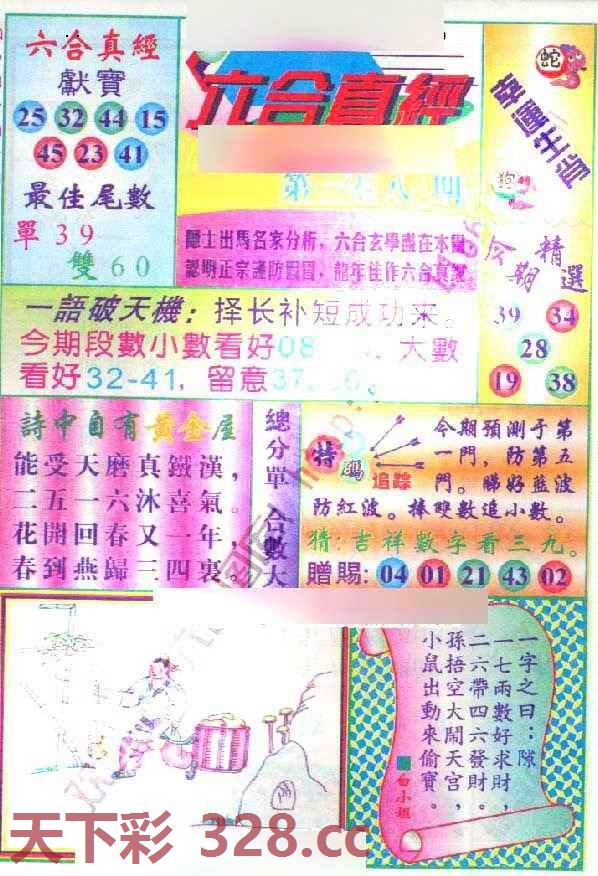 六合真經
獻寶
25 32 44 15
45 23 41
最佳尾數
單39
雙60
六合真經
蛇
狗
隱士出馬名家分析，六合玄學盡在本圖
今期
精選
39 34
28
19 38
一語破天機：择长补短成功来。
今期段數小數看好08 大數
看好32-41，留意37
詩中自有黃金屋
能受天磨真鐵漢，
二五一六沐喜氣。
花開回春又一年，
春到燕歸三四裏。
總分單
合數大
特碼
追踪
今期預測于第
一門，防第五
門。睇好藍波
防紅波。捧雙數追小數。
猜：吉祥數字看三九。
贈賜：04 01 21 43 02
一字之曰：隙
一七兩數好求財，
二六帶四六發財。
孫悟空大鬧天宮，
小鼠出動來偷寶。
白小姐
天下彩 328.cc